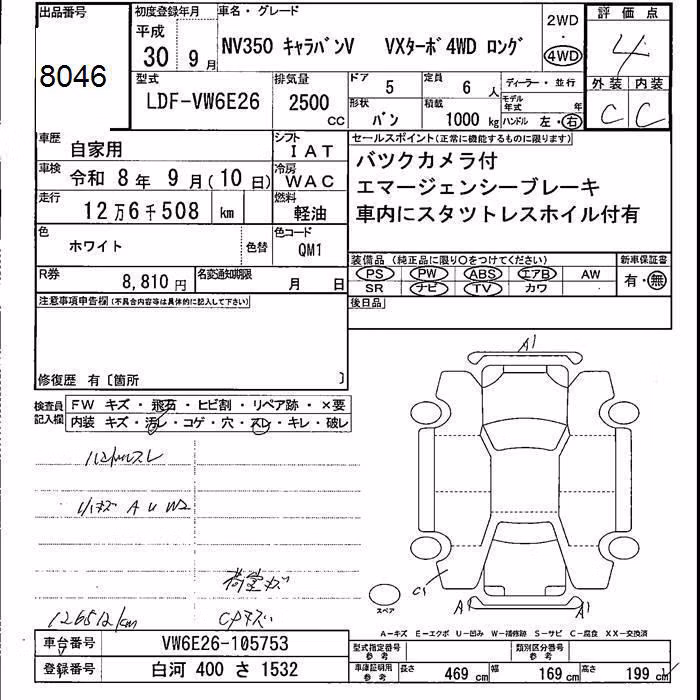 出品番号
8046
初度登録年月
平成
30 9 月
車名・グレード
NV350 キャラバンV VXターボ4WD ロング
2WD
・
4WD
評価点
4
外装 内装
C C
型式
LDF-VW6E26
排気量
2500
CC
ドア
5
定員
6 人
ディーラー・並行
形状
バン
積載
1000 kg
モデル年式 年
ハンドル 左・右
車歴
自家用
シフト
IAT
車検
令和 8 年 9 月(10 日)
冷房
WAC
走行
12 万 6 千 508 km
燃料
軽油
色
ホワイト
色替
色コード
QM1
R券
8,810 円
名変通知期限
月 日
セールスポイント(正常に機能するものに限ります)
バツクカメラ付
エマージェンシーブレーキ
車内にスタツトレスホイル付有
装備品(純正品に限り○をつけてください)
PS PW ABS エアB AW
SR ナビ TV カワ
新車保証書
有・無
後日品
注意事項申告欄(不具合内容等は具体的に記入して下さい)
修復歴 有〔箇所 〕
検査員記入欄
FW キズ・飛石・ヒビ割・リペア跡・×要
内装 キズ・汚レ・コゲ・穴・スレ・キレ・破レ
ハンドルスレ
小キズ A U W2
荷室ガ
126512km
CPキズ
A1
C1
A1 A1
スペア
A-キズ E-エクボ U-凹み W-補修跡 S-サビ C-腐食 XX-交換済
車台番号
VW6E26-105753
登録番号
白河 400 さ 1532
型式指定番号
参考
類別区分番号
参考
車庫証明用
参考
長さ 469 cm 幅 169 cm 高さ 199 cm